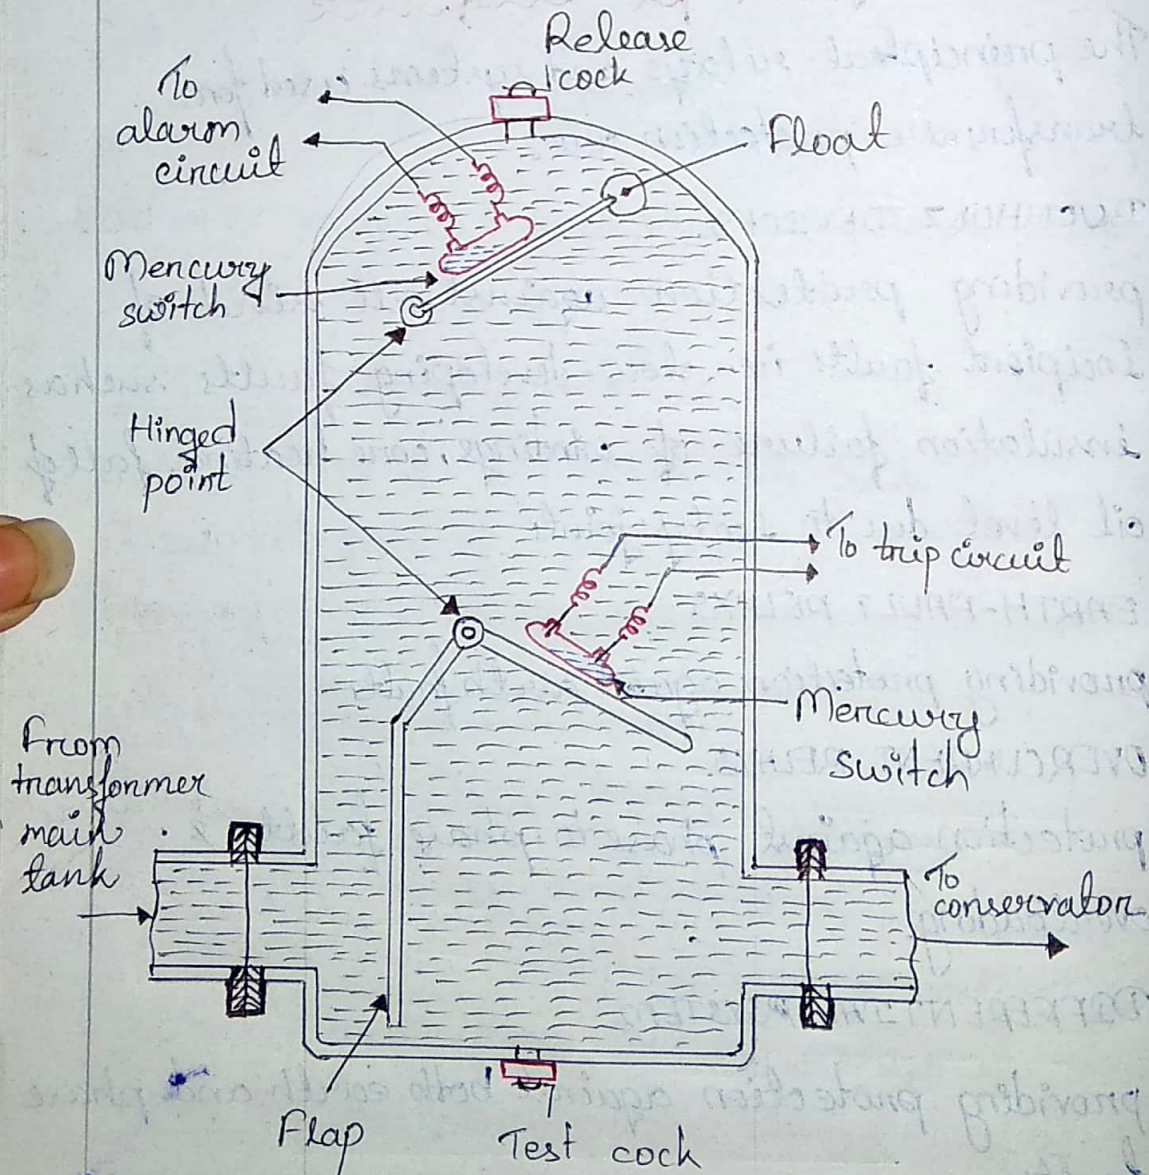 Release
cock
To
alarm
circuit
Float
Mercury
switch
Hinged
point
To trip circuit
Mercury
switch
From
transformer
main
tank
To
conservator
Flap
Test cock